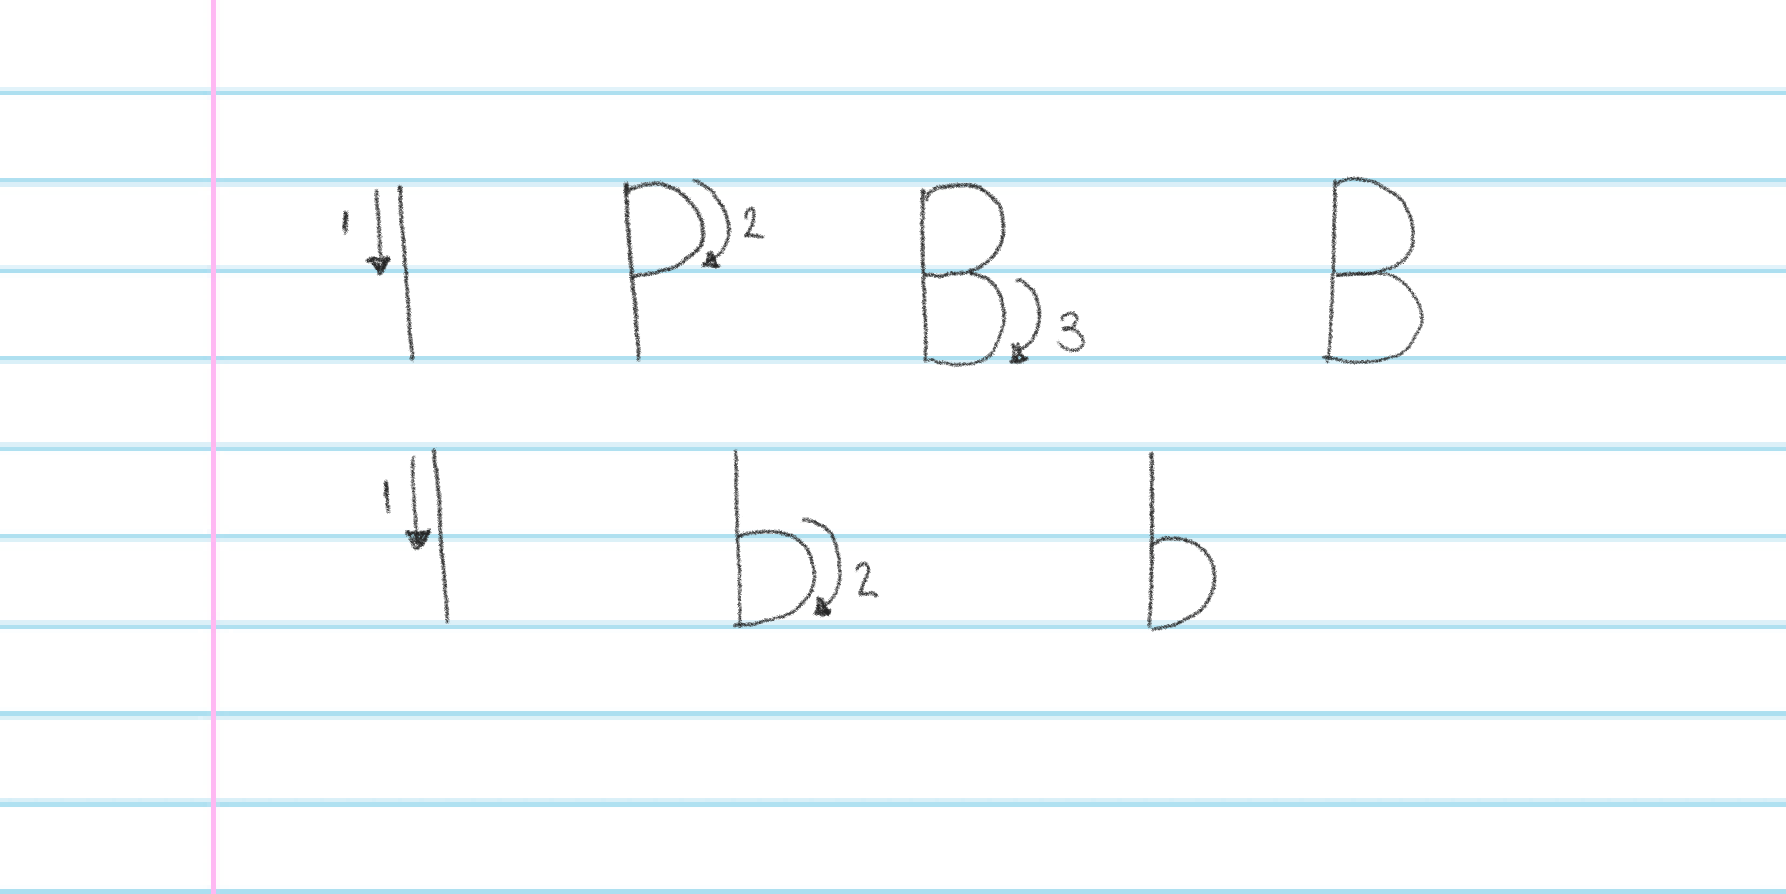 1 | P 2 B 3 B
1 | b 2 b